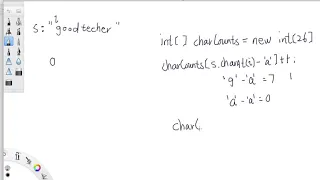 i
s: "goodtecher"
0
int[] charCounts = new int[26]
charCounts[s.charAt(i) - 'a']++;
'g' - 'a' = 7 1
'a' - 'a' = 0
char(